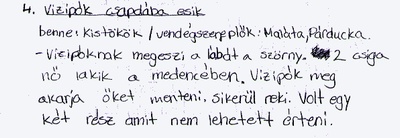 4. Vizipók csapdába esik
benne: Kistökök / vendégszereplők: Maláta, Párducka.
- Vizipóknak megeszi a labdát a szörny. 2 csiga
nő lakik a medencében. Vizipók meg
akarja őket menteni, sikerül neki. Volt egy
két rész amit nem lehetett érteni.